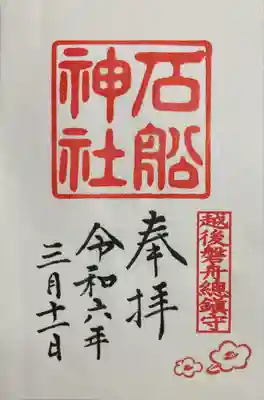 石船
神社
越後磐舟總鎮守
奉拝
令和六年
三月十一日